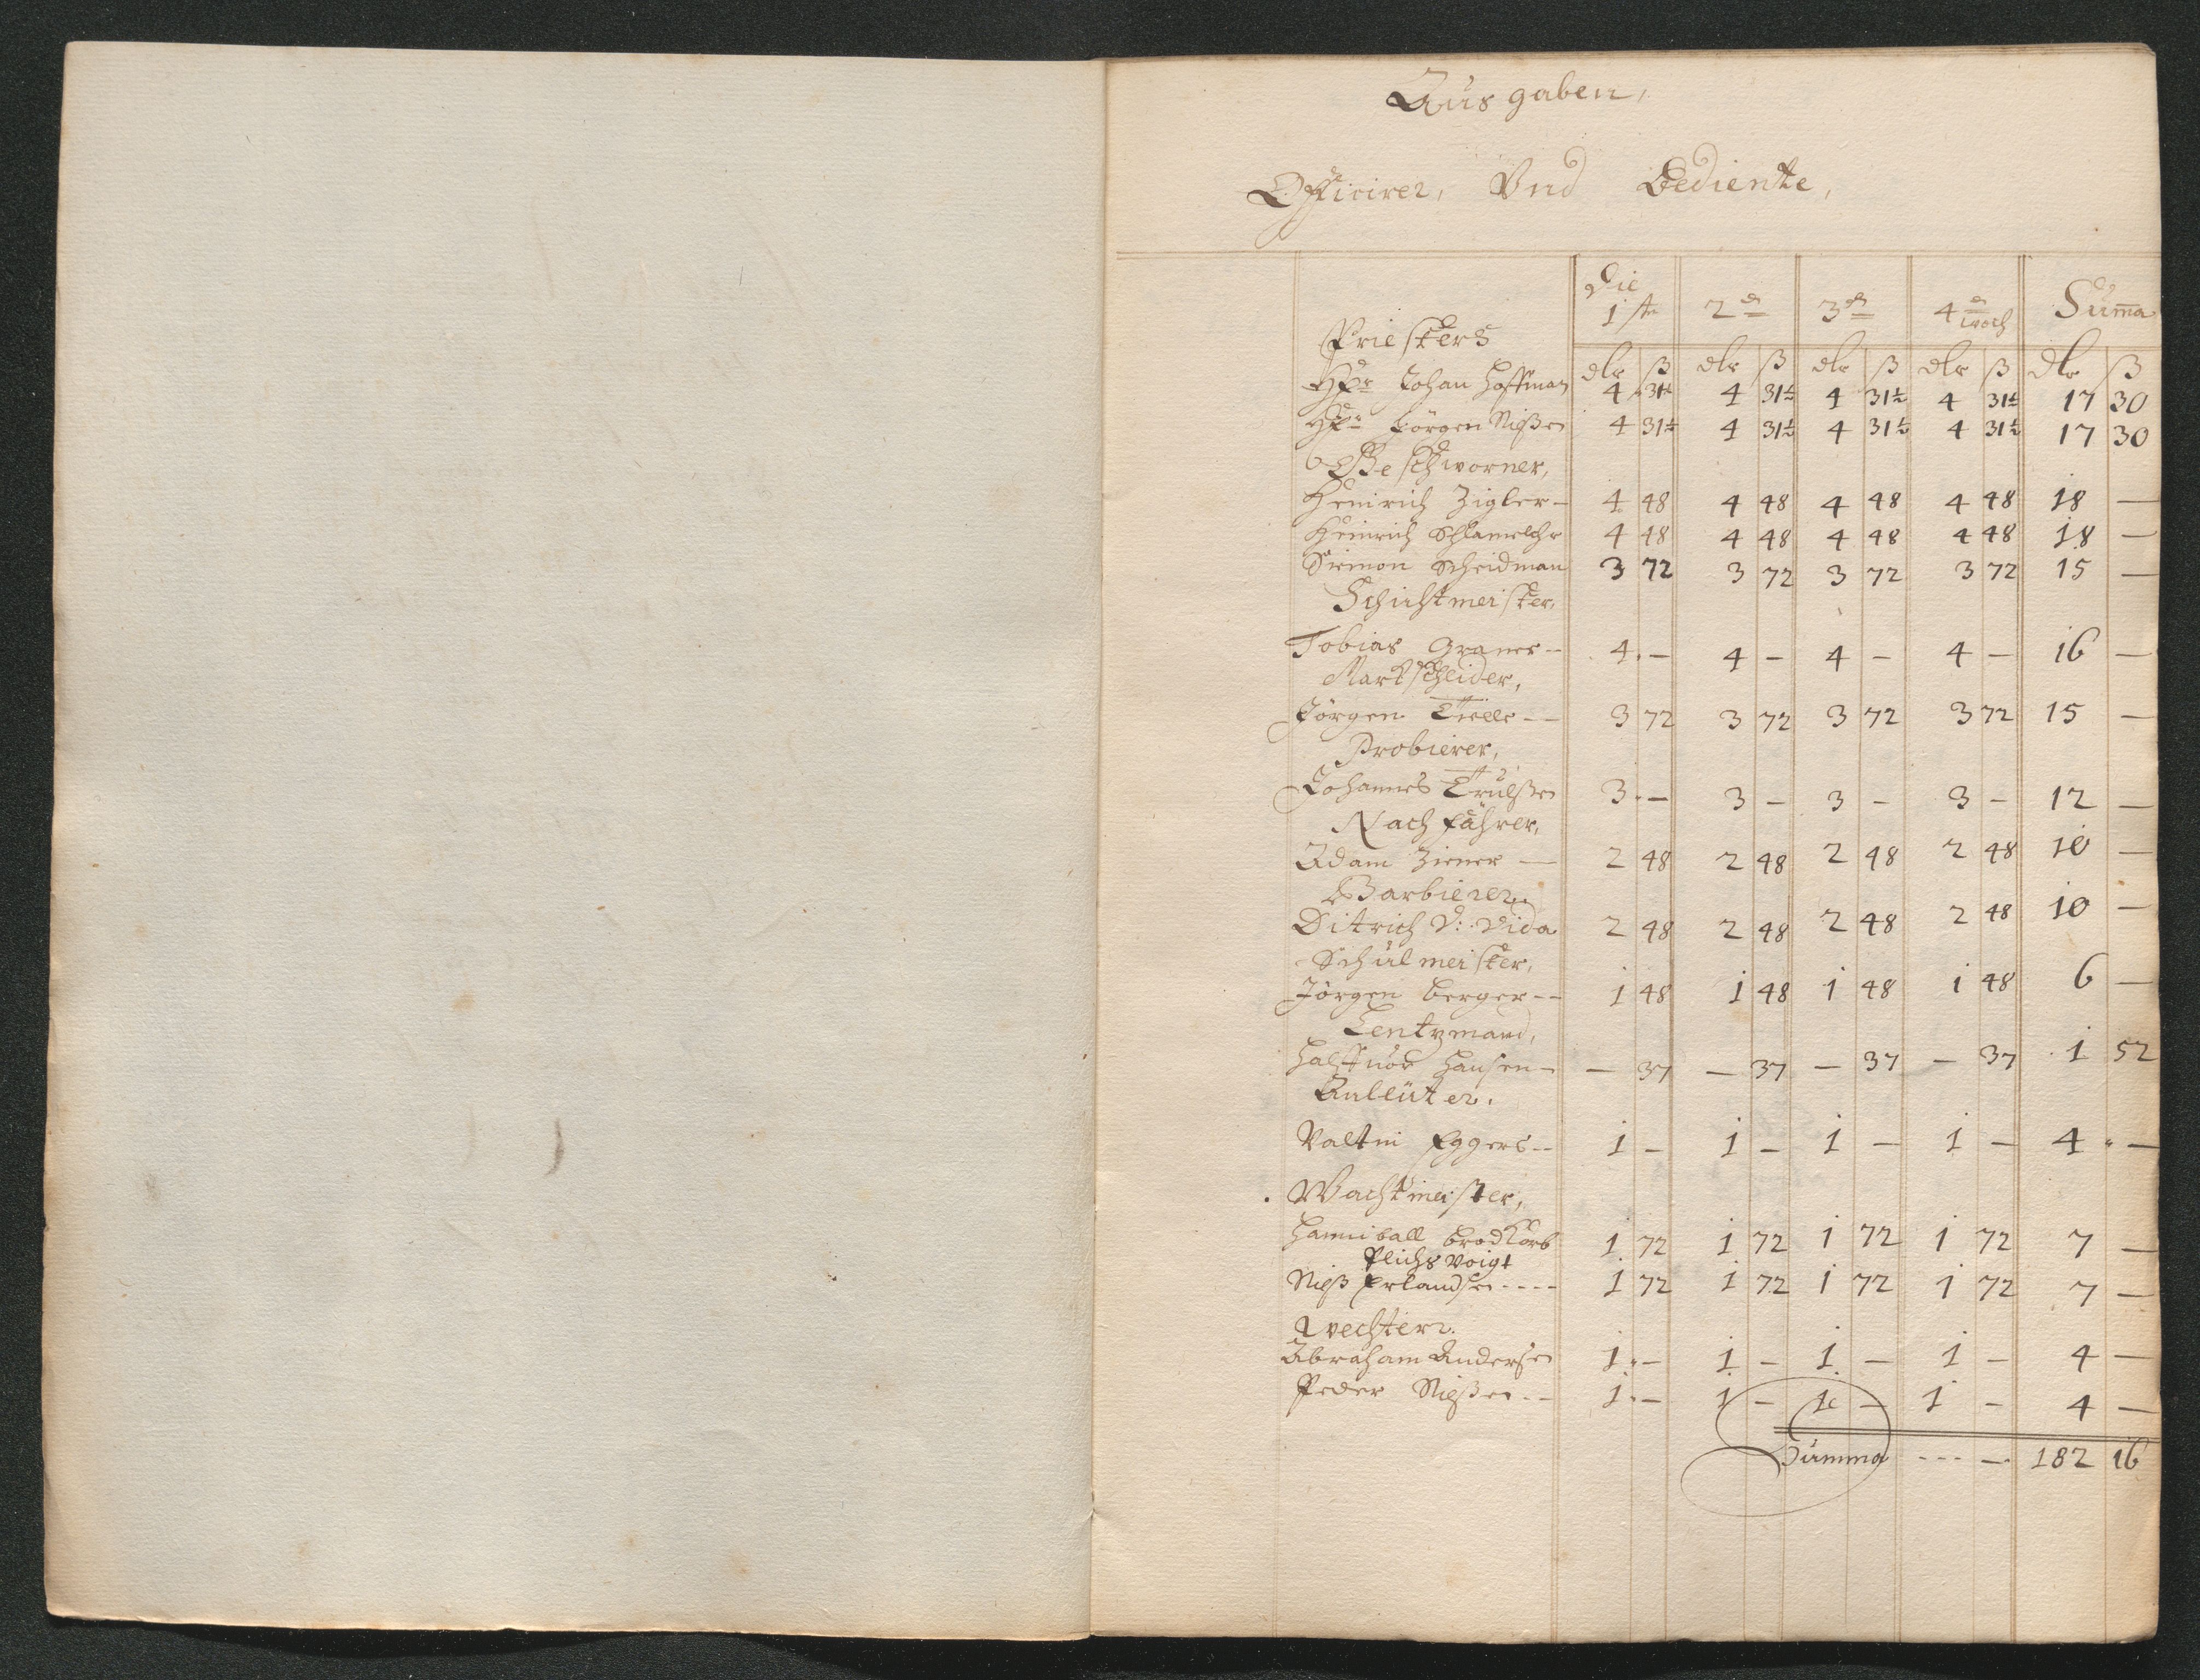 Ausgaben,
Officirer, Vnd Bediente,
Die
1ste 2de 3de 4de woch Summa
Priesters dlr ß dlr ß dlr ß dlr ß dlr ß
Hr Johan Hoffman 4 31½ 4 31½ 4 31½ 4 31½ 17 30
Hr Jörgen Nißen 4 31½ 4 31½ 4 31½ 4 31½ 17 30
Geschworner,
Henrich Zigler – 4 48 4 48 4 48 4 48 18 —
Heinrich 4 48 4 48 4 48 4 48 18 —
Siemon Scheidman 3 72 3 72 3 72 3 72 15 —
Schichtmeister,
Tobias Graner – 4 – 4 – 4 – 4 – 16 —
Markscheider,
Jörgen 3 72 3 72 3 72 3 72 15 —
Probierer,
Johannes Trulßen 3 – 3 – 3 – 3 – 12 —
Nachfahrer,
Adam Ziener — 2 48 2 48 2 48 2 48 10 —
Barbierer.
Ditrich V: Vida 2 48 2 48 2 48 2 48 10 —
Schulmeister,
Jörgen Berger -- 1 48 1 48 1 48 1 48 6 —
Lentzmand,
Halffuor Hansen – — 37 — 37 — 37 — 37 1 52
Anleüter.
Valtin Eggers -- 1 – 1 – 1 – 1 – 4 —
Wachtmeister,
Hanniball Brodkorb 1 72 1 72 1 72 1 72 7 —
Plichs Voigt
Nilß Erlandsen ---- 1 72 1 72 1 72 1 72 7 —
Wechter.
Abraham Andersen 1 – 1 – 1 – 1 – 4 —
Peder Nilßen -- 1 – 1 – 1 – 1 – 4 —
Summa ---- 182 16